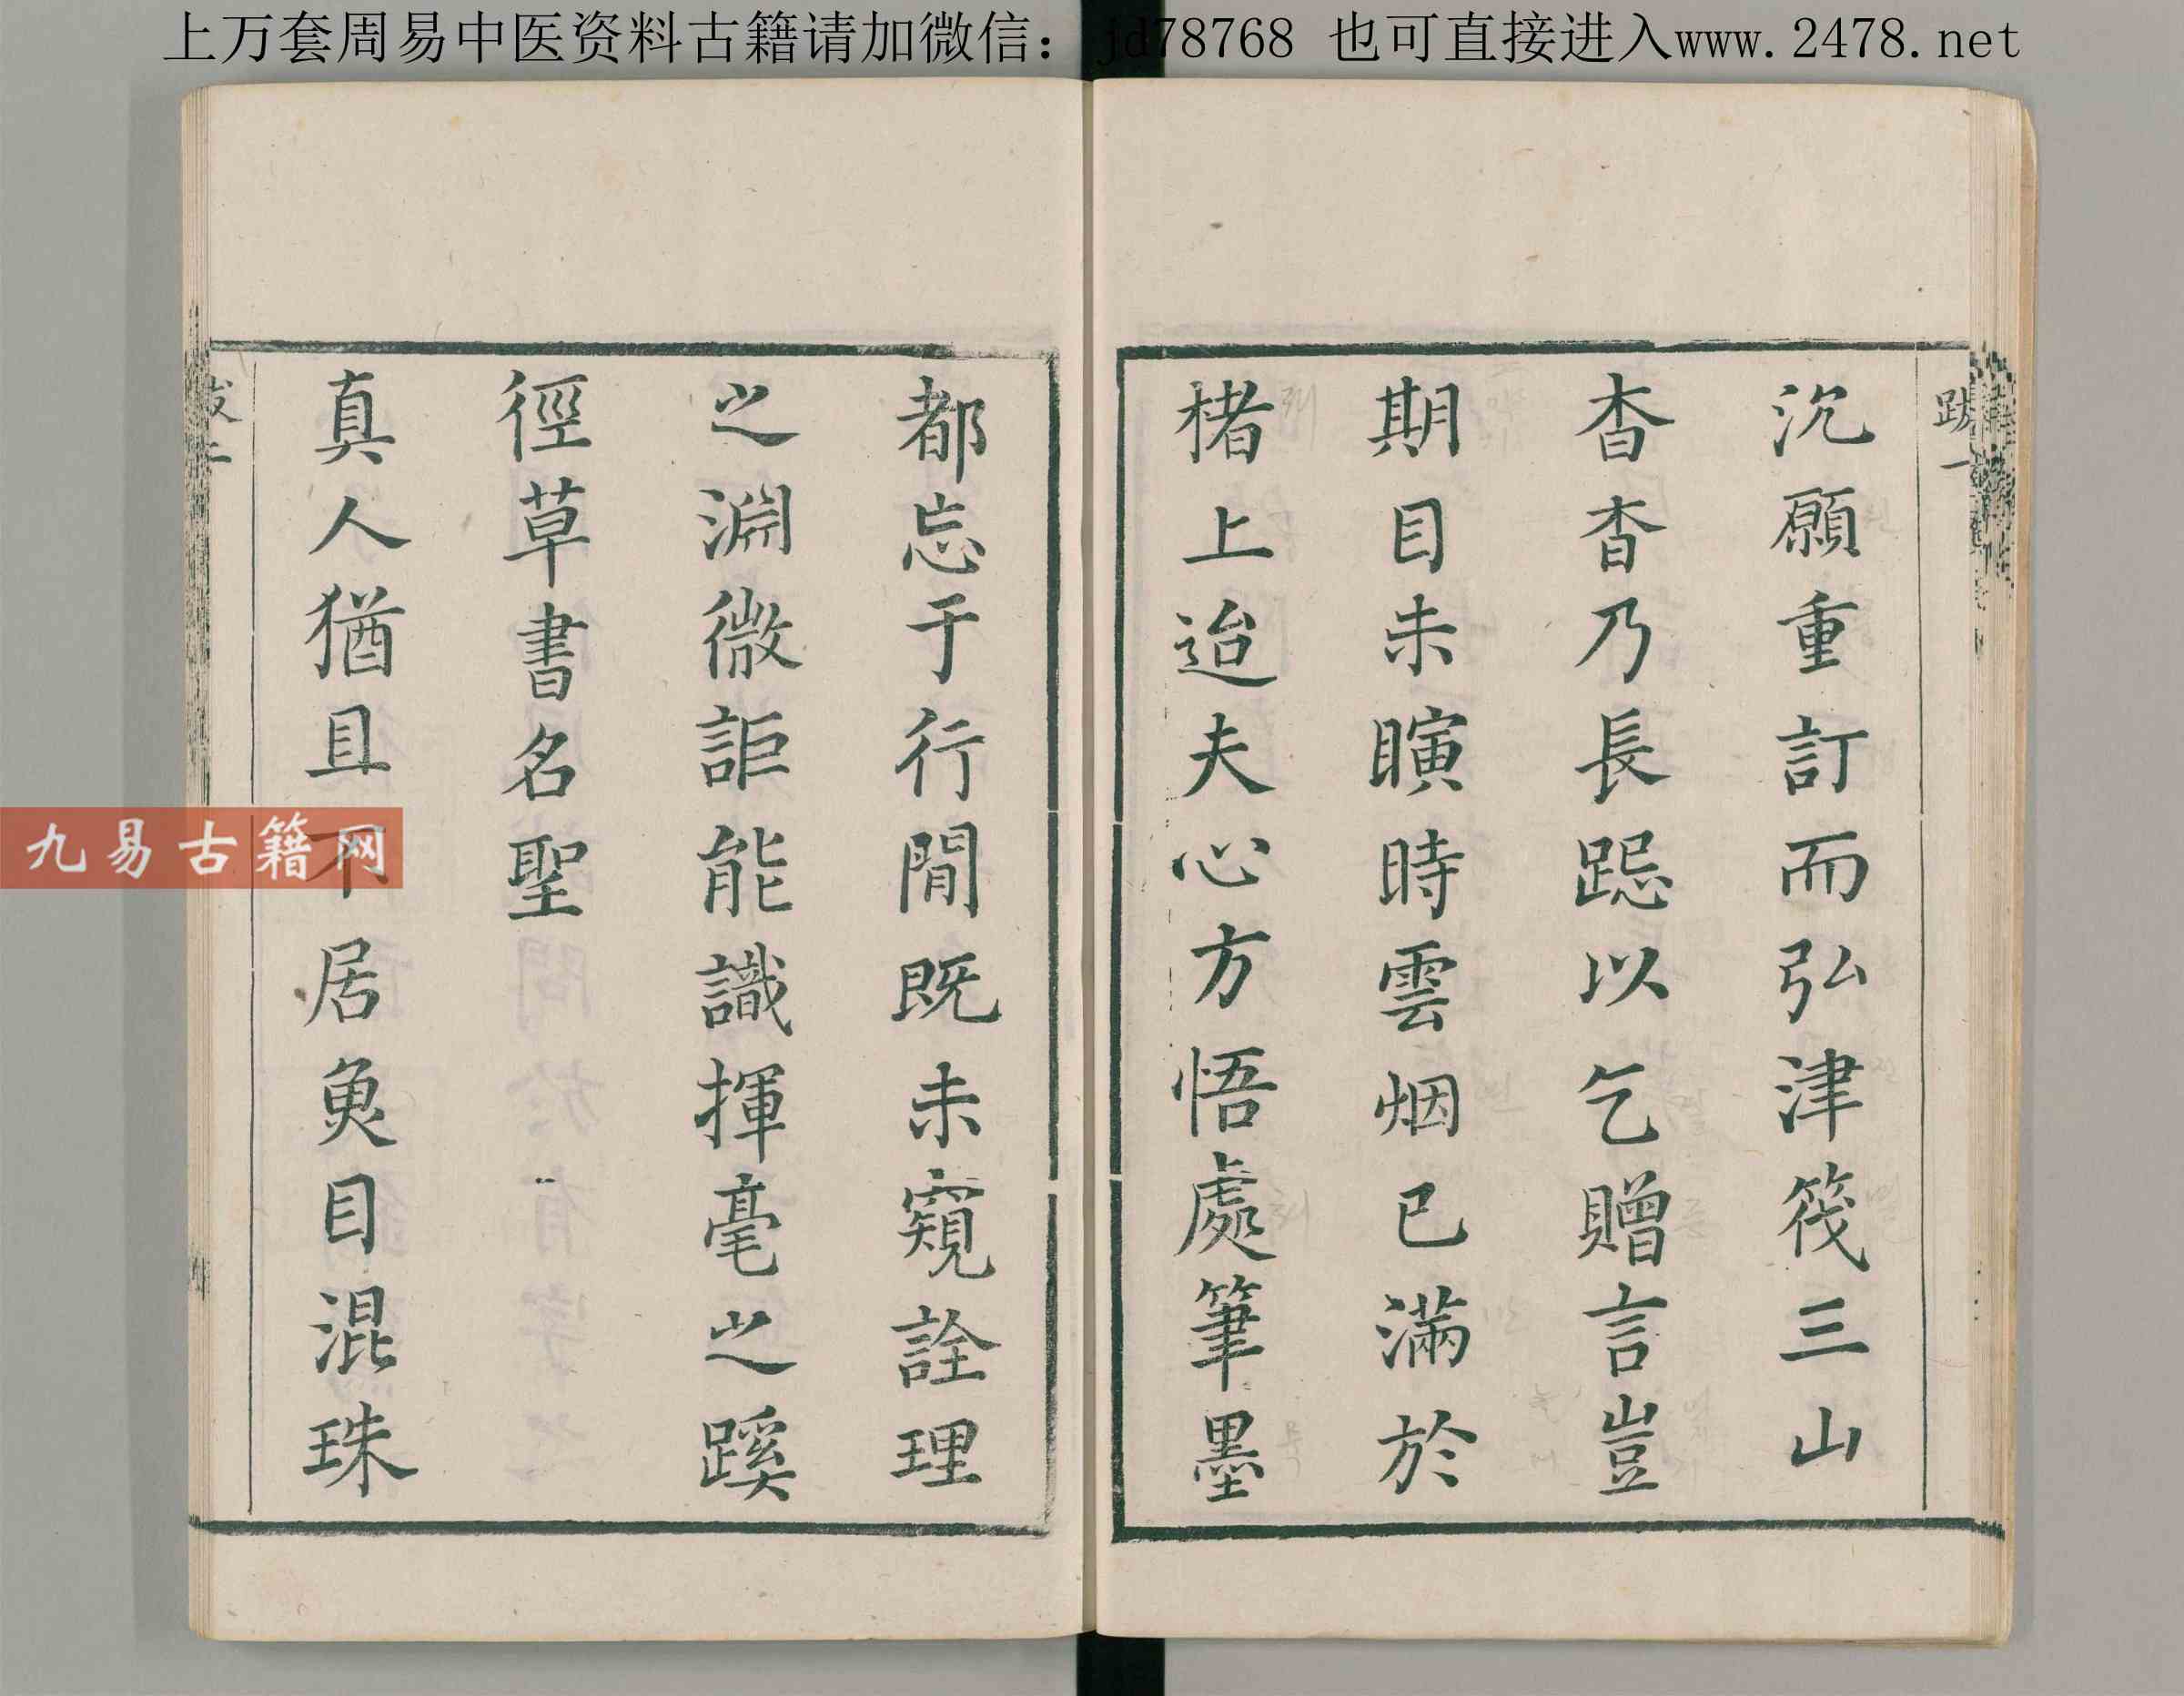 上万套周易中医资料古籍请加微信：jd78768 也可直接进入www.2478.net
跋一
沉願重訂而弘津筏三山
杳杳乃長跽以乞贈言豈
期目未瞚時雲烟已滿於
楮上迨夫心方悟處筆墨
都忘于行間既未窺詮理
之淵微詎能識揮毫之蹊
徑草書名聖
真人猶且不居魚目混珠
跋二
九易古籍网